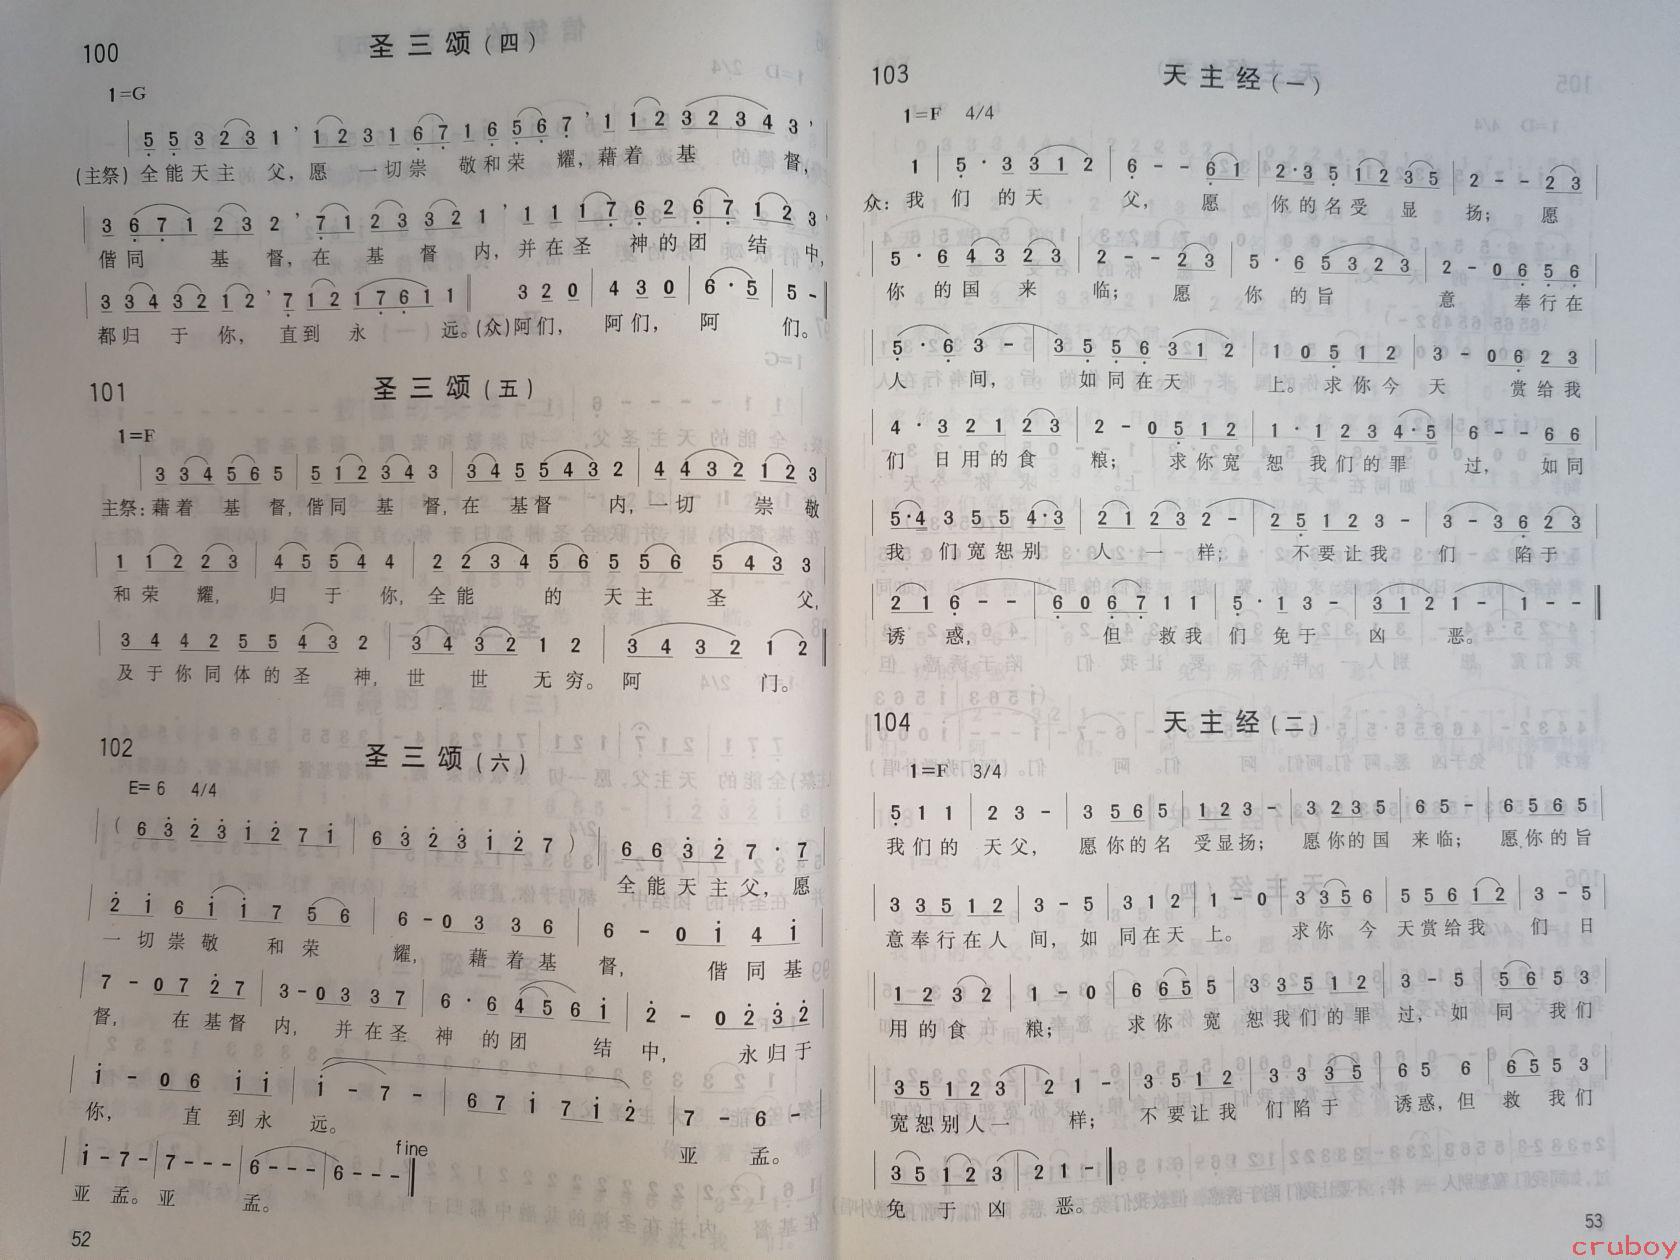 100 圣三颂(四)
1=G
5 5 3 2 3 1 ' 1 2 3 1 6 7 1 6 5 6 7 ' 1 1 2 3 2 3 4 3 '
(主祭)全能天主 父,愿 一切崇 敬和荣 耀,藉着 基 督,
3 6 7 1 2 3 2 ' 7 1 2 3 3 2 1 ' 1 1 1 7 6 2 6 7 1 2 3 '
偕同 基 督,在 基 督 内,并在圣 神的团 结 中,
3 3 4 3 2 1 2 ' 7 1 2 1 7 6 1 1 ‖ 3 2 0 | 4 3 0 | 6·5 | 5 - ‖
都归 于 你, 直到 永 远。(众)阿们, 阿们, 阿 们。
101 圣三颂(五)
1=F
| 3 3 4 5 6 5 | 5 1 2 3 4 3 | 3 4 5 5 4 3 2 | 4 4 3 2 1 2 3
主祭:藉着 基 督,偕同 基 督,在基督 内,一切 崇 敬
| 1 1 2 2 3 | 4 5 5 4 4 | 2 2 3 4 5 6 5 5 6 5 4 3 3
和荣 耀, 归 于 你,全能 的 天主 圣 父,
| 3 4 4 2 5 5 4 3 2 | 3 4 3 2 1 2 | 3 4 3 2 1 2 ‖
及于你同体的圣 神,世 世 无穷。阿 门。
102 圣三颂(六)
E=6 4/4
| ( 6 3 2 3 1 2 7 1 | 6 3 2 3 1 2 7 ) | 6 6 3 2 7 · 7
全能天主父,愿
| 2 1 6 1 1 7 5 6 | 6 - 0 3 3 6 | 6 - 0 1 4 1
一切崇敬 和荣 耀, 藉着基 督, 偕同基
7 - 0 7 2 7 | 3 - 0 3 3 7 | 6 · 6 4 5 6 1 | 2 - 0 2 3 2
督, 在基督 内, 并在圣 神 的团 结 中, 永归于
| 1 - 0 6 1 1 | 1 - 7 - | 6 7 1 7 1 2 | 7 - 6 -
你, 直 到永 远。 亚 孟。
fine
| 1 - 7 - | 7 - - - | 6 - - - | 6 - - - ‖
亚 孟。亚 孟。
52
103 天主经(一)
1=F 4/4
1 | 5 · 3 3 1 2 | 6 - - 6 1 | 2·3 5 1 2 3 5 | 2 - - 2 3 |
众:我 们 的天 父, 愿 你的名受 显 扬; 愿
| 5 · 6 4 3 2 3 | 2 - - 2 3 | 5 · 6 5 3 2 3 | 2 - 0 6 5 6 |
你 的国 来 临; 愿 你 的旨 意 奉行在
| 5 · 6 3 - | 3 5 5 6 3 1 2 | 1 0 5 1 2 | 3 - 0 6 2 3
人 间, 如同在天 上。求你今 天 赏给我
| 4 · 3 2 1 2 3 | 2 - 0 5 1 2 | 1 · 1 2 3 4·5 | 6 - - 6 6 |
们 日用的食 粮; 求你宽 恕 我们的罪 过, 如同
| 5·4 3 5 5 4·3 | 2 1 2 3 2 - | 2 5 1 2 3 - | 3 - 3 6 2 3 |
我 们宽恕别 人 一 样; 不要让我 们 陷于
| 2 1 6 - - | 6 0 6 7 1 1 | 5 · 1 3 - | 3 1 2 1 - | 1 - - ‖
诱 惑, 但 救我 们 免于 凶 恶。
104 天主经(二)
1=F 3/4
| 5 1 1 | 2 3 - | 3 5 6 5 | 1 2 3 - | 3 2 3 5 | 6 5 - | 6 5 6 5 |
我们的 天父, 愿你的名 受显扬; 愿你的国 来临; 愿你的旨
| 3 3 5 1 2 | 3 - 5 | 3 1 2 | 1 - 0 | 3 3 5 6 | 5 5 6 1 2 | 3 - 5 |
意奉行在人 间,如 同在天 上。 求你 今 天赏给我 们 日
| 1 2 3 2 | 1 - 0 | 6 6 5 5 | 3 3 5 1 2 | 3 - 5 | 5 6 5 3 |
用的食 粮; 求你 宽 恕我们的罪 过,如 同 我们
| 3 5 1 2 3 | 2 1 - | 3 5 1 2 | 3 3 3 5 | 6 5 6 | 6 5 5 3 |
宽恕别人一 样; 不要让我 们陷于 诱惑,但 救 我们
| 3 5 1 2 3 | 2 1 - ‖
免 于 凶 恶。
53
cruboy